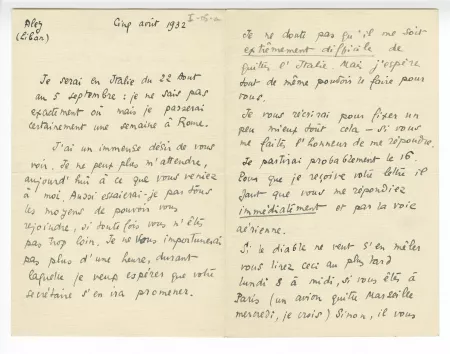 Aley
(Liban)
Cinq août 1932
Je serai en Italie du 22 Aout
au 5 septembre : je ne sais pas
exactement où mais je passerai
certainement une semaine à Rome.
J'ai un immense désir de vous
voir. Je ne peux plus m'attendre,
aujourd'hui à ce que vous veniez
à moi. Aussi essaierai-je par tous
les moyens de pouvoir vous
rejoindre, si toutefois vous n'êtes
pas trop loin. Je ne vous importunerai
pas plus d'une heure, durant
laquelle je veux espérer que votre
secrétaire s'en ira promener.
Je ne doute pas qu'il me soit
extrêmement difficile de
quitter l'Italie. Mais j'espère
tout de même pouvoir le faire pour
vous.
Je vous récrirai pour fixer un
peu mieux tout cela – si vous
me faites l'honneur de me répondre.
Je partirai probablement le 16.
Pour que je reçoive votre lettre il
faut que vous me répondiez
immédiatement et par la voie
aérienne.
Si le diable ne veut s'en mêler
vous lirez ceci au plus tard
lundi 8 à midi, si vous êtes à
Paris (un avion quitte Marseille
mercredi, je crois) Sinon, il vous